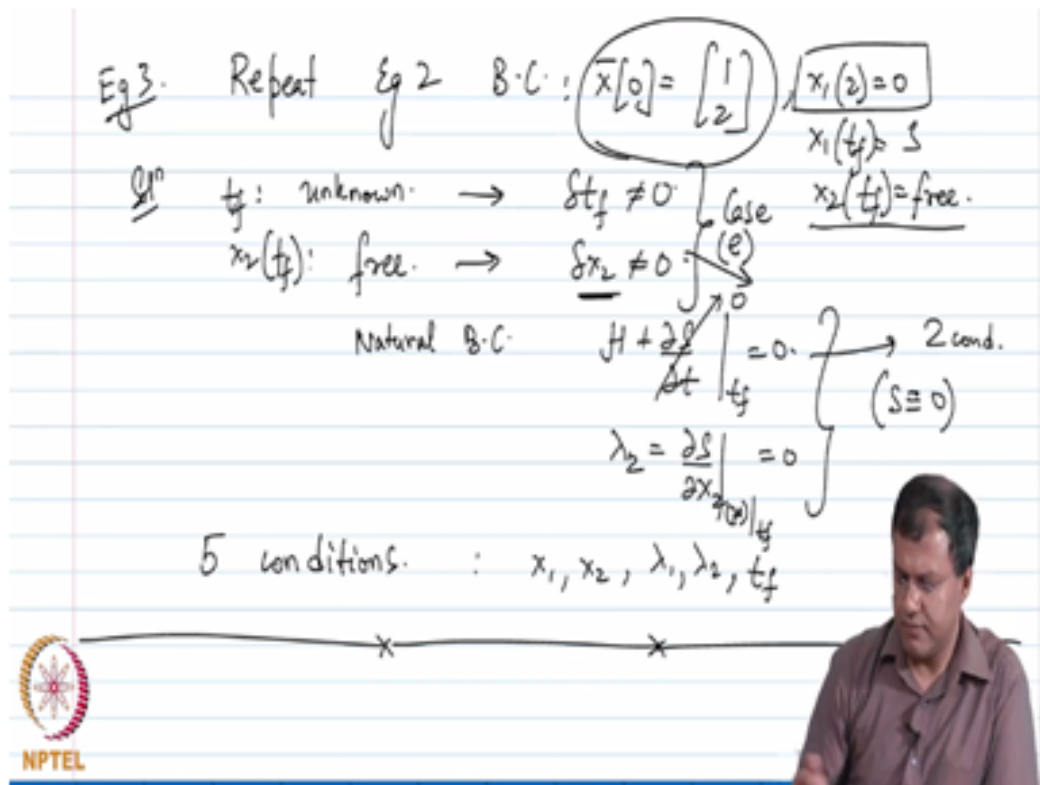 Eg 3. Repeat Eg 2 B.C: x̄[0] = [1 2], x₁(2)=0
x₁(t_f)= 3
Solⁿ t_f: unknown. → δt_f ≠ 0 } Case (e) x₂(t_f)=free.
x₂(t_f): free. → δx₂ ≠ 0
Natural B.C. H + ∂S/∂t |t_f = 0. → 2 cond.
(S ≡ 0)
λ₂ = ∂S/∂x₂ |t_f = 0
5 conditions. : x₁, x₂, λ₁, λ₂, t_f
NPTEL